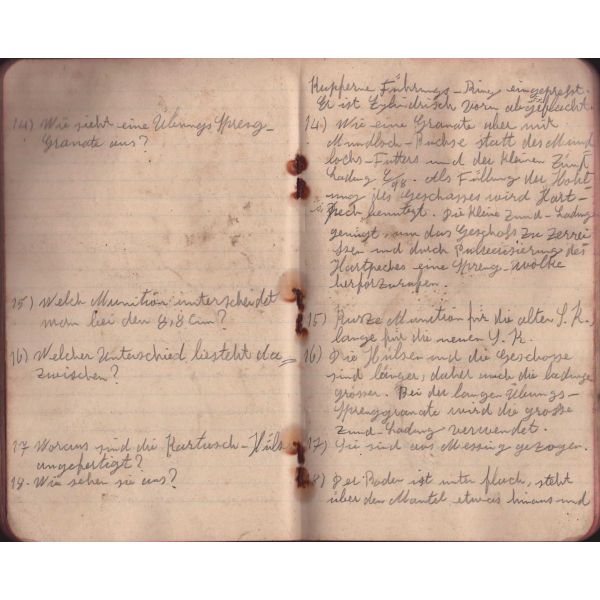 14) Wie sieht eine Übungs Spreng-
Granate aus?
15) Welch Munition unterscheidet
man bei den 8,8 Cm?
16) Welcher Unterschied besteht da
zwischen?
17 Woraus sind die Kartusch-Hüls
angefertigt?
18. Wie sehen sie aus?
Kupferne Führungs-Ring eingepreßt.
Er ist Zylindrisch vorn abgeflacht.
14.) Wie eine Granate aber mit
Mundloch-Buchse statt des Mund
lochs-Futters und der kleinen Zünd
Ladung
Als Füllung der Höhl
ung des Geschosses wird Hart-
Pech benutzt. Die kleine Zünd-Ladung
genügt, um das Geschoß zu zerrei
ssen und durch Pulverisierung des
Hartpeches eine Spreng-Wolke
herforzurufen.
15) Kurze Munition für die alten S.K,
lange für die neuen S.K.
16) Die Hülsen und die Geschosse
sind länger, daher auch die ladung
grösser. Bei der langen Übungs-
Sprenggranate wird die grosse
Zünd-Ladung verwendet.
17) Sie sind aus Messing gezogen.
18) Der Boden ist unten flach, steht
über den Mantel etwas hinaus und